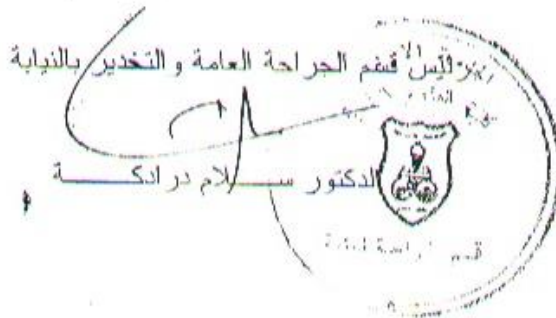 رئيس قسم الجراحة العامة والتخدير بالنيابة
الدكتور ســـــلام درادكـــــــة